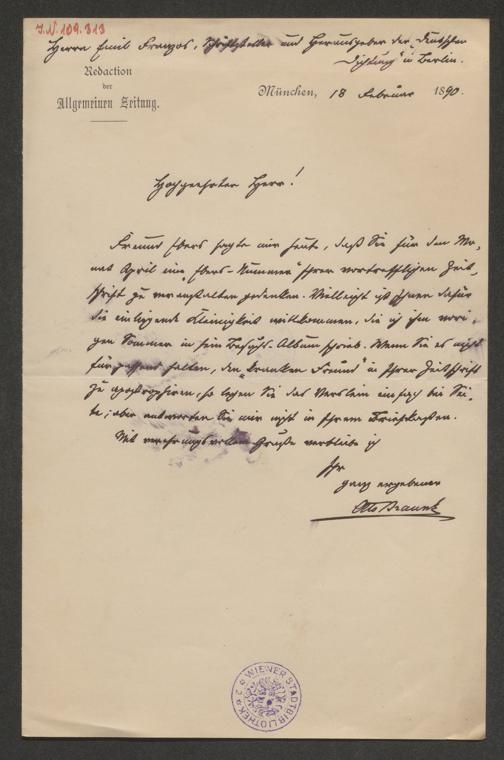 I.N. 109.313
Herrn Emil Franzos, Schriftsteller und Herausgeber der „Deutschen
Dichtung“ in Berlin.
Redaction
der
Allgemeinen Zeitung.
München, 18 Februar 1890.
Hochgeehrter Herr!
Freund Ebers sagte mir heute, daß Sie für den Mo-
nat April eine „Ebers-Nummer“ Ihrer vortrefflichen Zeit-
schrift zu veranstalten gedenken. Vielleicht ist Ihnen dafür
die einliegende Kleinigkeit willkommen, die ich ihm vori-
gen Sommer in sein Besuchs-Album schrieb. Wenn Sie es nicht
für passend halten, den „kranken Freund“ in Ihrer Zeitschrift
zu apostrophiren, so legen Sie das Verslein einfach bei Sei-
te; aber antworten Sie mir nicht in Ihrem Briefkasten.
Mit verehrungsvollem Gruße verbleibe ich
Ihr
ganz ergebener
Otto Braun
WIENER STADTBIBLIOTHEK